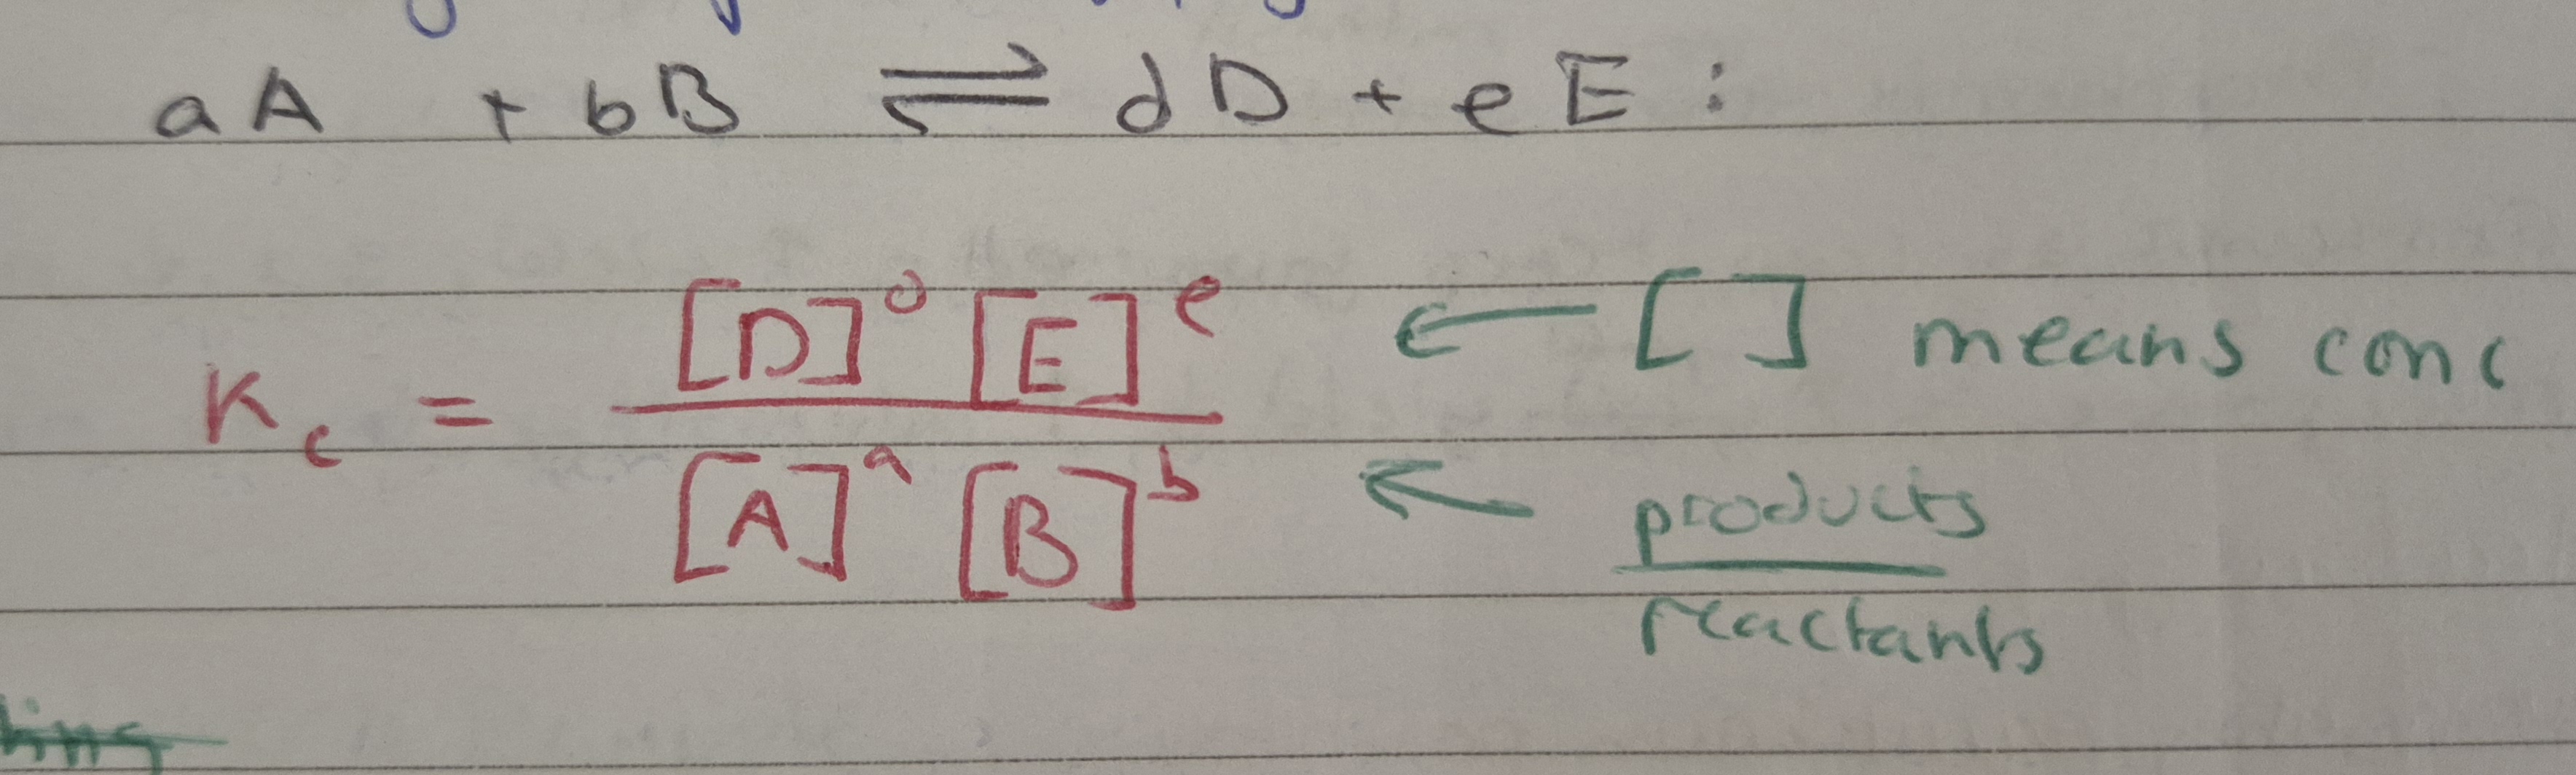 aA + bB ⇌ dD + eE :
Kc = [D]^d [E]^e / [A]^a [B]^b
← [ ] means conc
← products / reactants